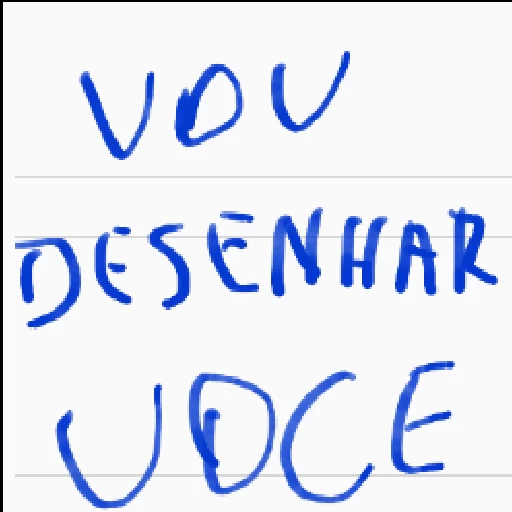 VOU
DESENHAR
VOCE